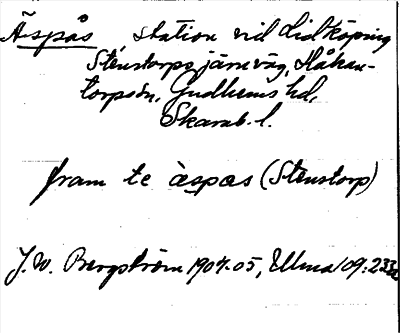 Äspås station vid Lidköping
Stenstorps järnväg, Håkan-
torps sn, Gudhems hd,
Skarab. l.
fram te àspas (Stenstorp)
J. W. Bergström 1904-05, Ullma 09:233